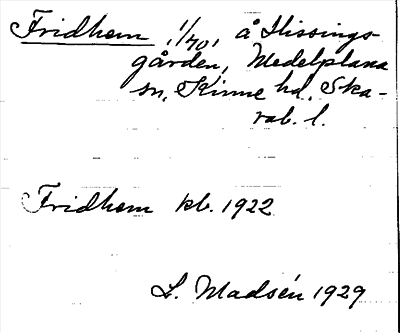 Fridhem, 1/40, å Hissings-
gården, Medelplana
sn, Kinne hd, Ska-
rab. l.
Fridhem kb. 1922
L. Madsén 1929